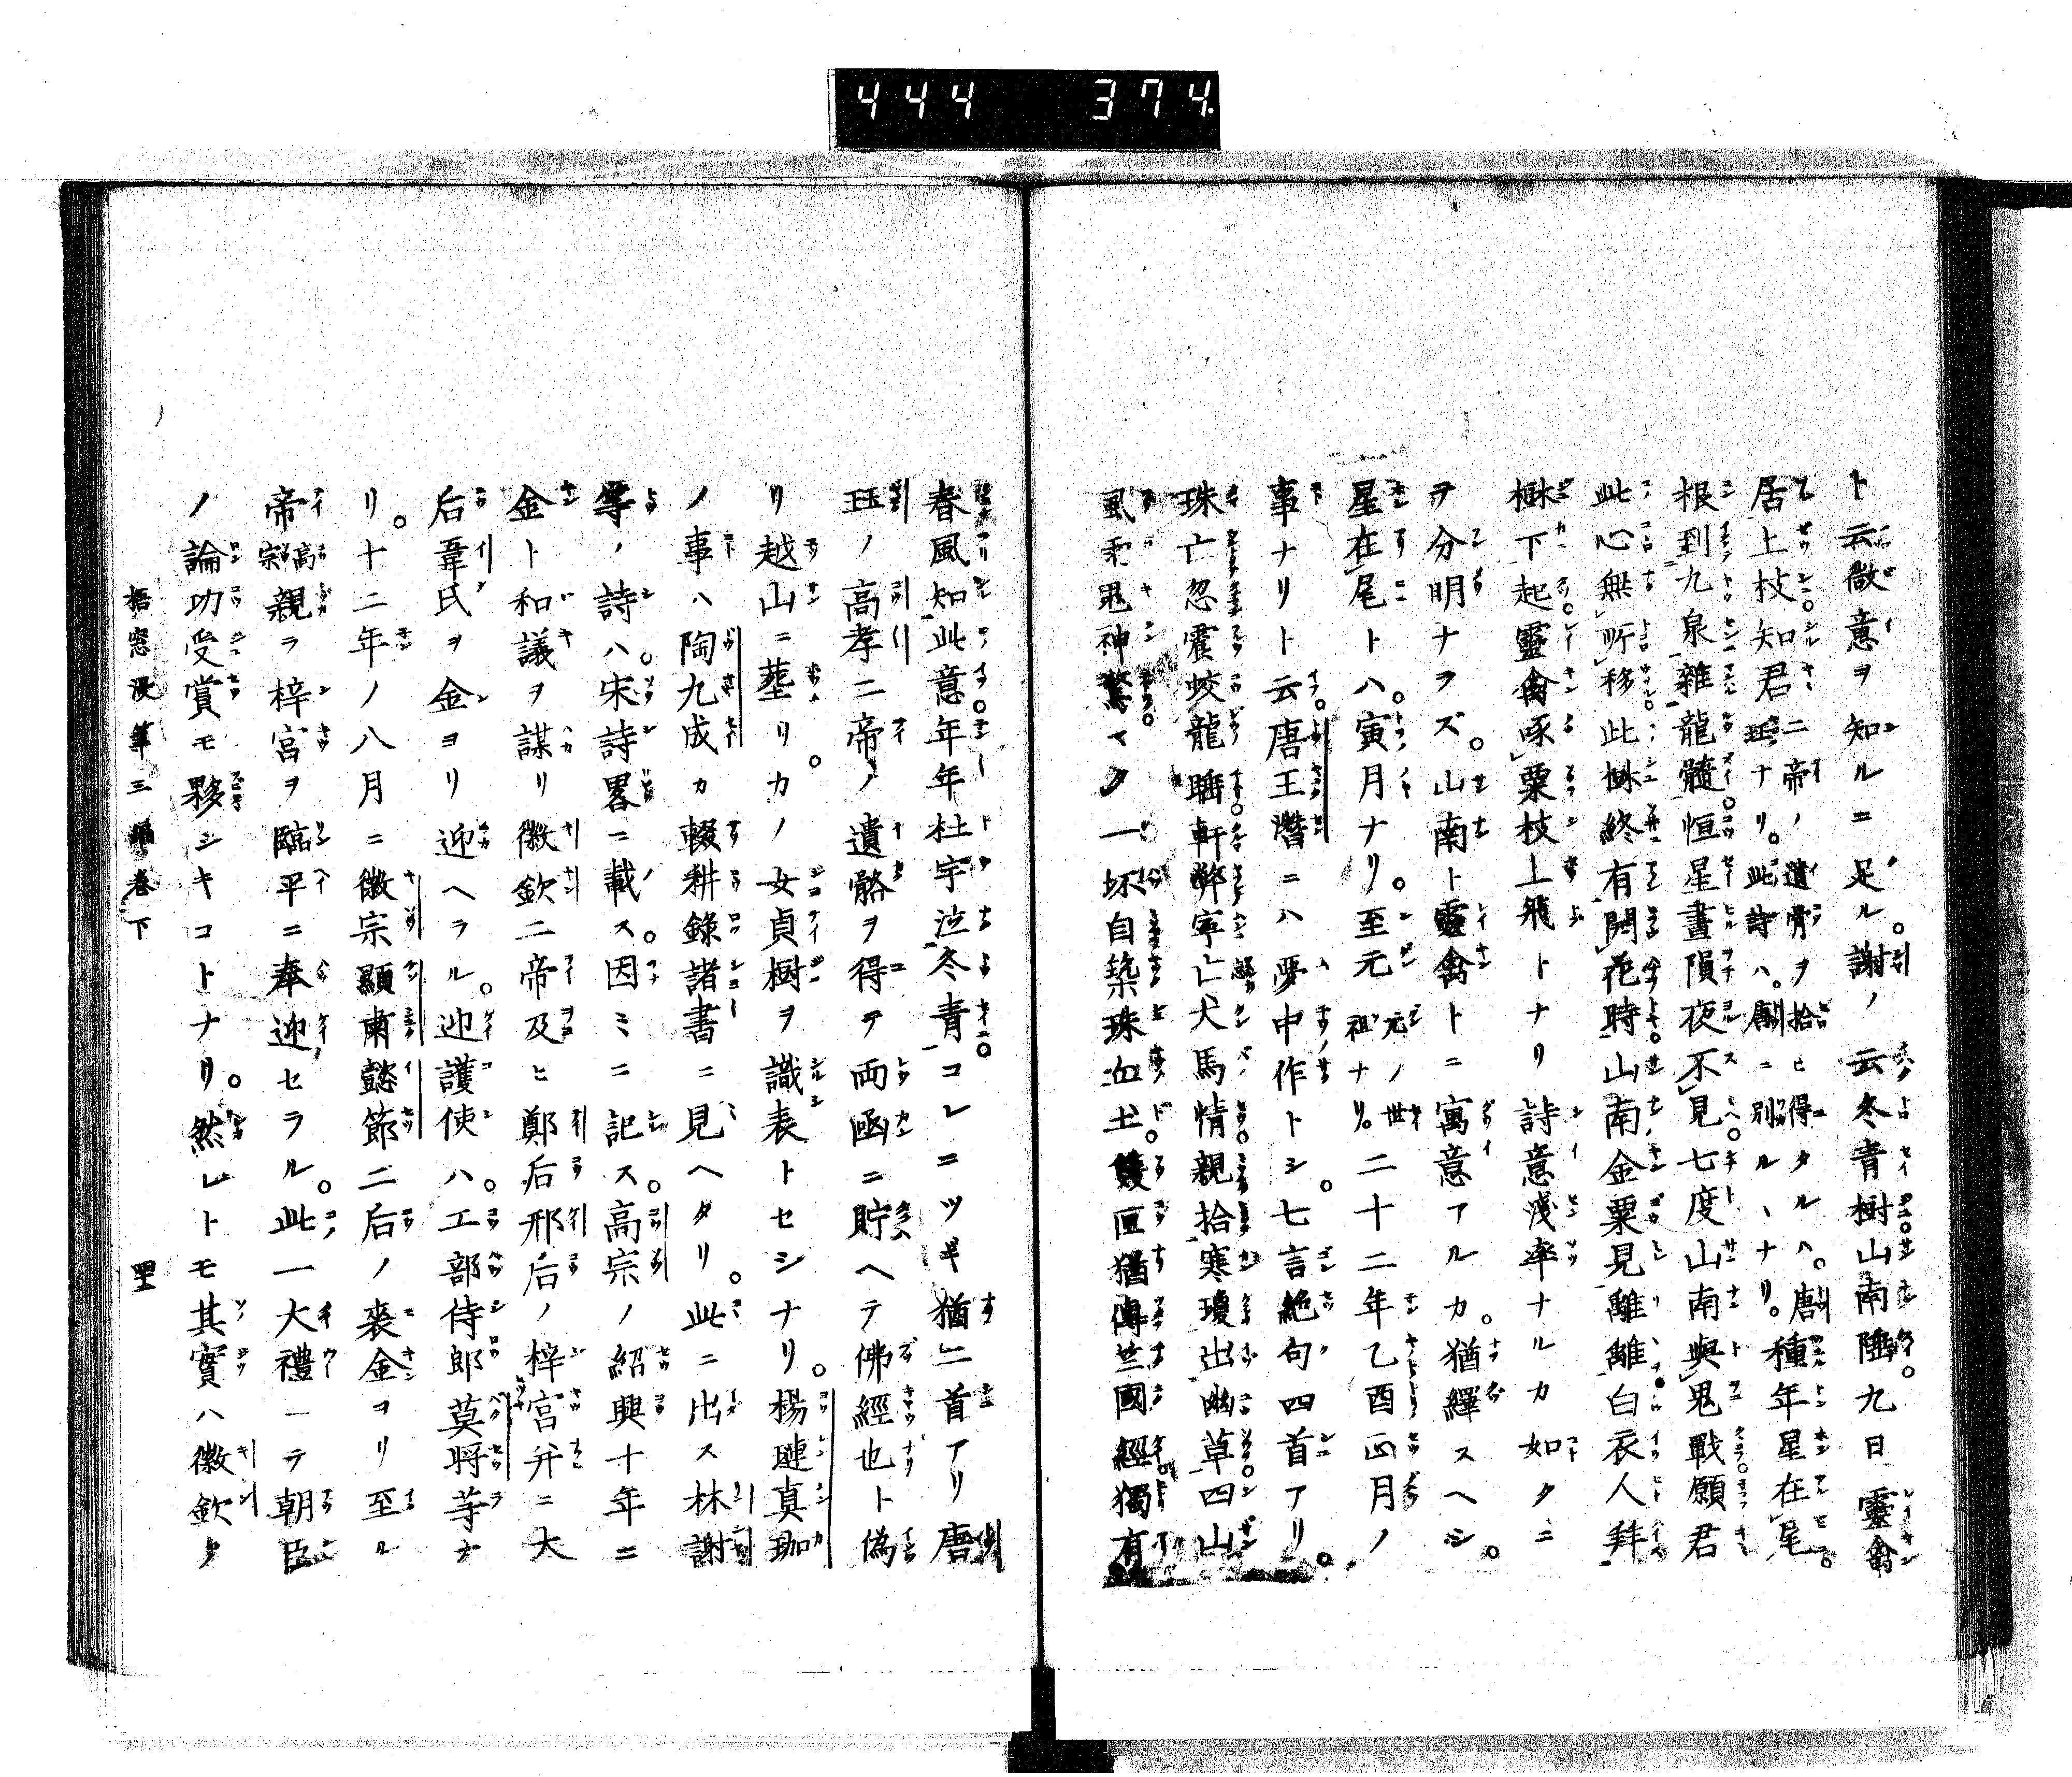 444 374.
ト云微意ヲ知ルニ足ル。謝ノ云冬青樹山南陲。九日靈禽
居上枝知君珏ナリ。二帝ノ遺骨ヲ拾ヒ得タルハ。唐此詩ハ。劂ニ別ルヽナリ。種年星在尾
根到九泉雜龍髓恒星晝隕夜不見七度山南與鬼戰願君
此心無所移此樹終有開花時山南金粟見離離白衣人拜
樹下起靈禽啄粟枝上飛トナリ詩意淺率ナルカ如クニ
ヲ分明ナヲズ。山南ト靈禽トニ寓意アルカ。猶繹スヘシ。
星在尾トハ。寅月ナリ。至元元ノ世祖ナリ。二十二年乙酉正月ノ
事ナリト云。唐王潛ニハ夢中作トシ。七言絶句四首アリ。
珠亡忽震蛟龍睡軒弊寧亡犬馬情親拾寒瓊出幽草四山
風雨鬼神驚マタ一坏自築珠丘土。雙匣猶傳竺國經獨有
春風知此意年年杜宇泣冬青コレニツギ猶二首アリ唐
珏ノ高孝二帝ノ遺骼ヲ得テ両函ニ貯ヘテ佛經也ト偽
リ越山ニ塟リ。カノ女貞樹ヲ識表トセシナリ。楊璉真珈
ノ事ハ陶九成カ輟耕錄諸書ニ見ヘタリ。此ニ出ス林謝
等ノ詩ハ。宋詩畧ニ載ス。因ミニ記ス。高宗ノ紹興十年ニ
金ト和議ヲ謀リ徽欽二帝及ヒ鄭后邢后ノ梓宮并ニ大
后韋氏ヲ金ヨリ迎ヘラル。迎護使ハ。工部侍郎莫将等ナ
リ。十二年ノ八月ニ徽宗顯肅懿節二后ノ喪金ヨリ至ル
帝高宗親ラ梓宮ヲ臨平ニ奉迎セラル。此一大禮ニテ朝臣
ノ論功受賞モ夥シキコトナリ。然レトモ其實ハ徽欽タ
梧窓漫筆三編卷下 四十